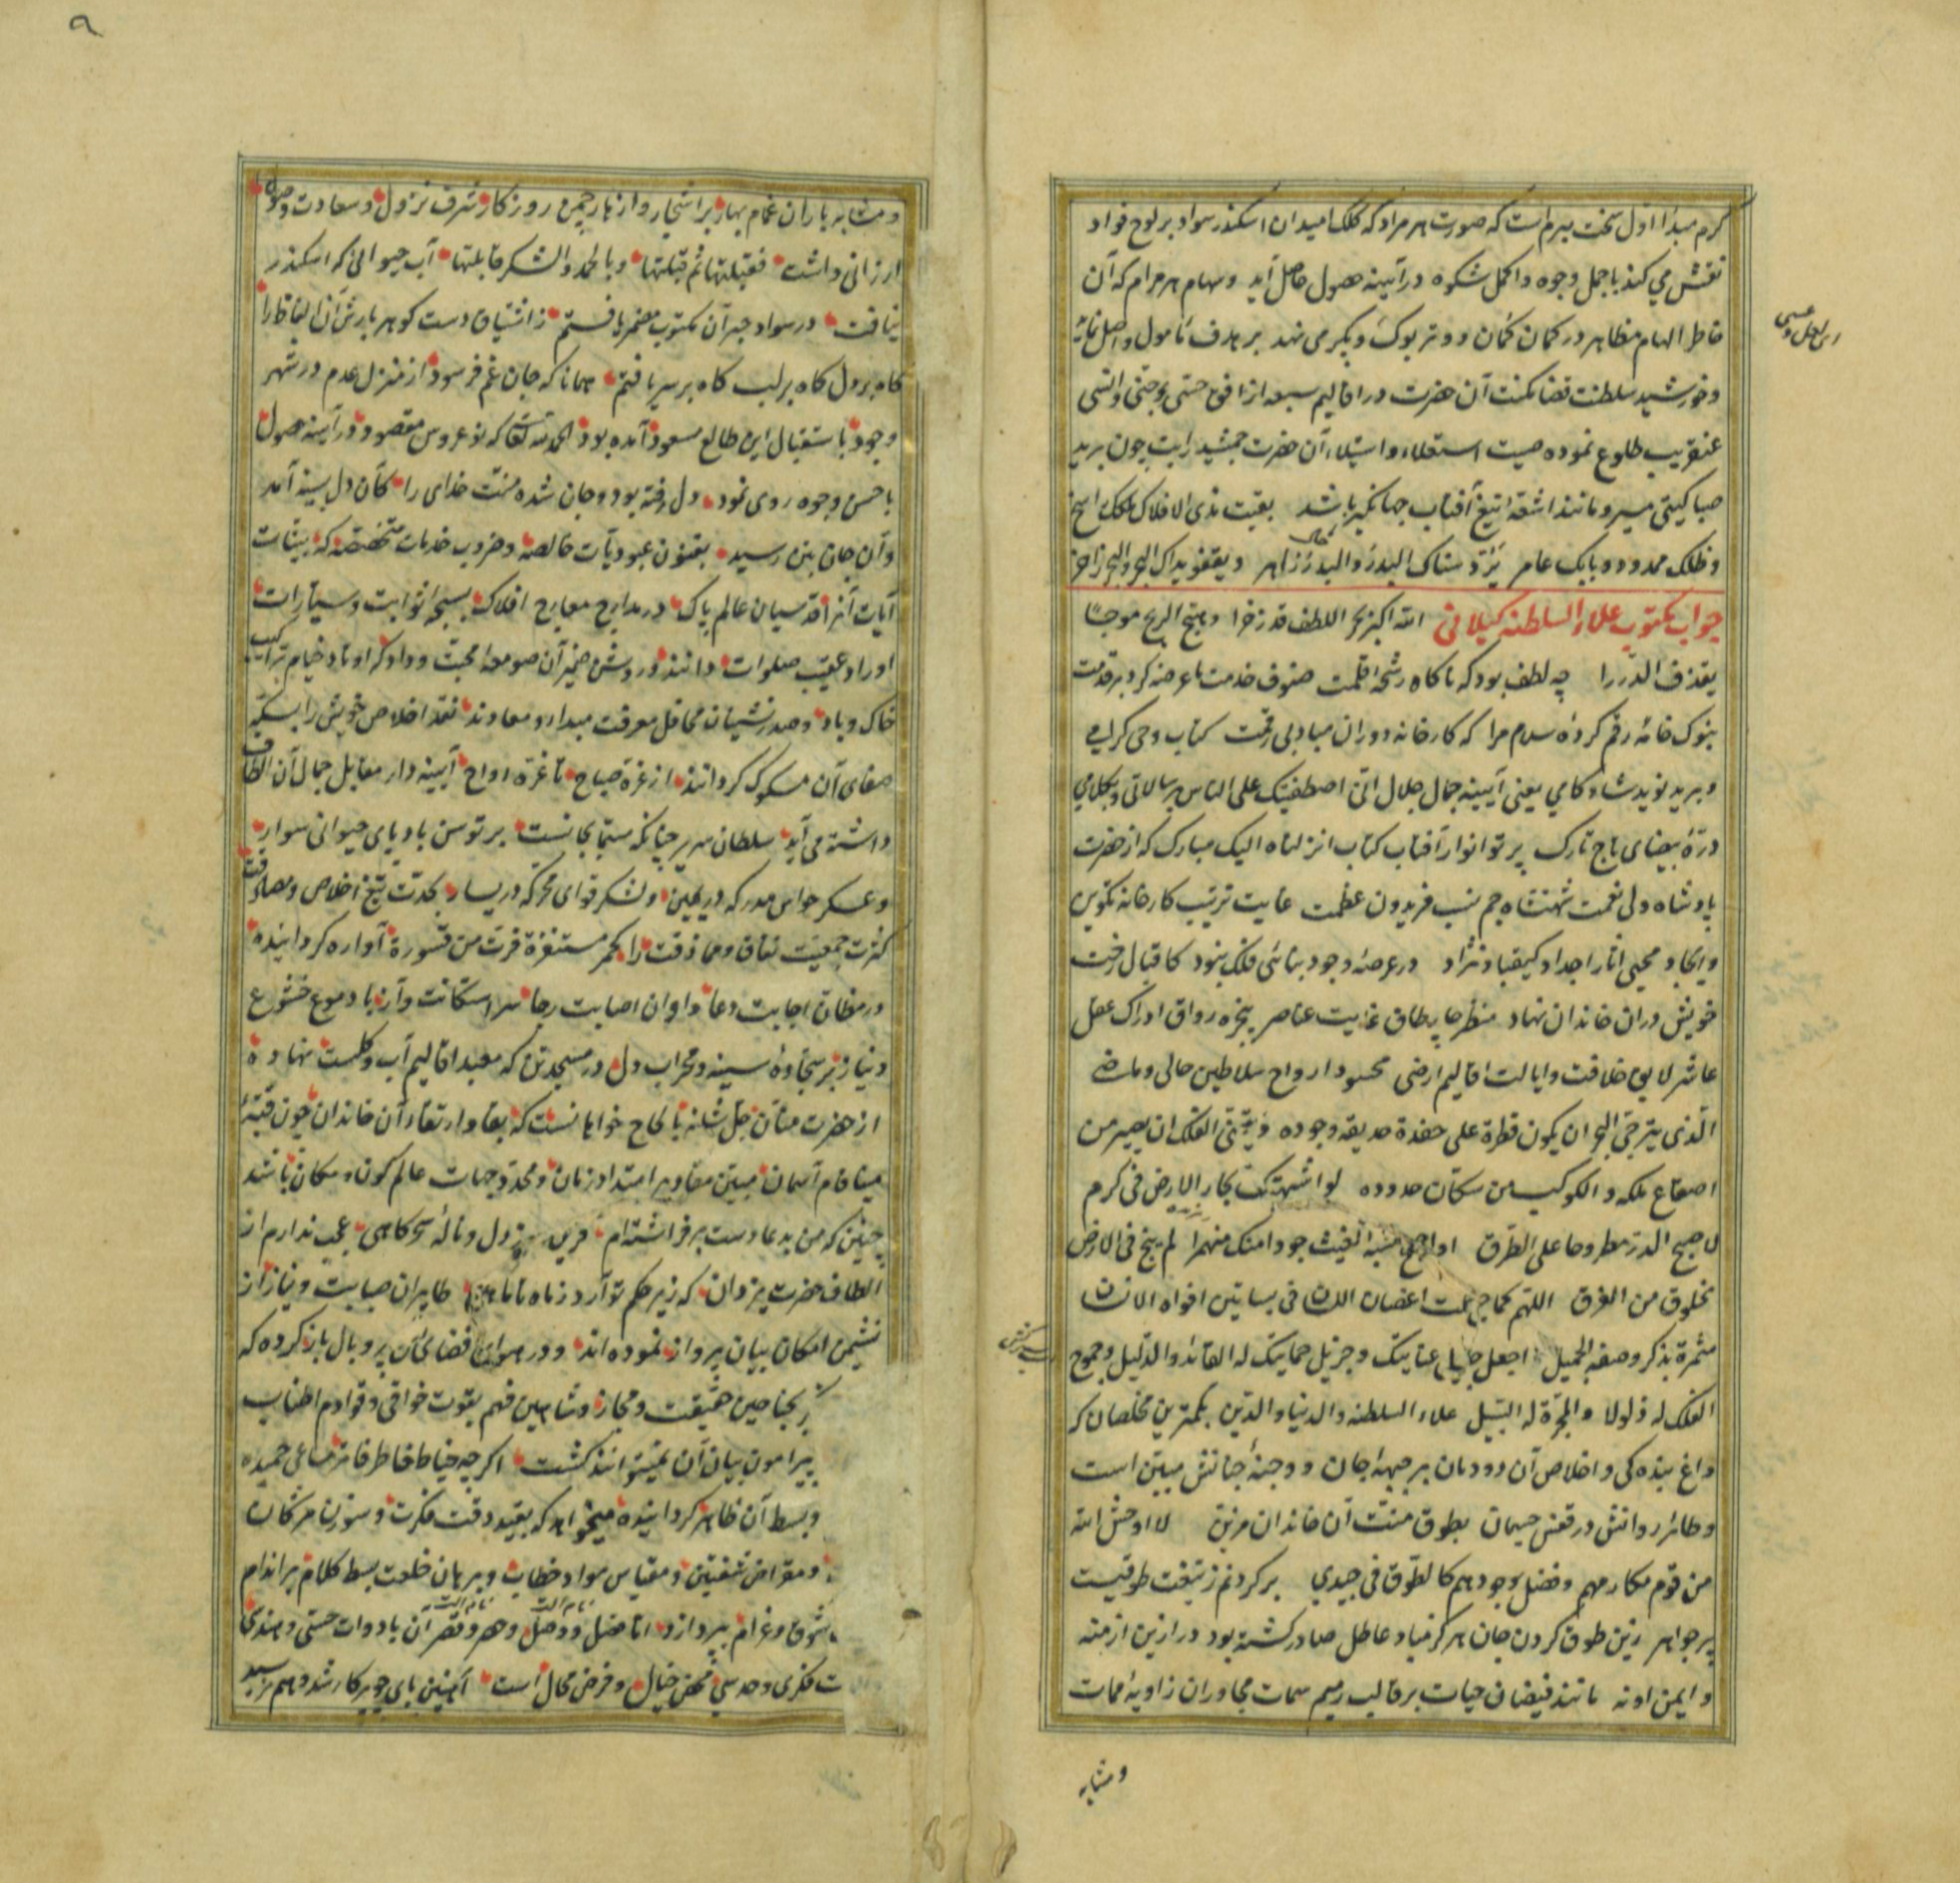 کرم مبدا اول سخت مبرم است که صورت هر مراد که کلک امید ان اسکندر سواد بر لوح فواد
نقش می کند باجمل وجوه و اکمل شکوه در آیینه حصول حاصل آید و سهام هر مرام که آن
خاطر الهام مظاهر در کمان کمان و وتر بوک و مگر می نهد بر هدف مأمول واصل نماید
و خورشید سلطنت قضا مکنت آن حضرت در اقالیم سبعه از افق حسبی و
عنقریب طلوع نموده صیت استعلاء و استیلاء آن حضرت جمشید رایت چون برید
صبا کیتی سیر و مانند اشعه تیغ آفتاب جهانگیر باشد بقیت مدی الافلاک ملکک راسخ
و ظلک ممدود و بابک عامر یود سناک البدر و البدر زاهر و یقفو نداک البحر و البحر زاخر
جواب مکتوب علاء السلطنه کیلانی الله اکبر بحر اللطف قد زخرا و هیج الریح موجا
یقذف الدررا چه لطف بود که ناکاه رشحه قلمت حقوق خدمت ما عرضه کرد بر کرمت
بنوک خامه رقم کرده سلام مرا که کارخانه دوران مباد بی رقمت کتاب وحی کرامی
و برید نوید شاد کامی یعنی آیینه جمال جلال انی اصطفیتک علی الناس برسالاتی و بکلامی
دره بیضای تاج تارک پرتو انوار آفتاب کتاب انزلناه الیک مبارک که از حضرت
پادشاه ولی نعمت شهنشاه جم نسب فریدون عظمت غایت ترتیب کارخانه تکوین
و ایجاد محیی آثار اجداد کیقباد نژاد در عرصه وجود بنائی فلک ننمود کاقبال رخت
خویش دران خاندان نهاد منظر چار طاق غرابت عناصر پنجره رواق ادراک عقل
عاشر لایق خلافت و ایالت اقالیم ارضی محسود ارواح سلاطین حالی و ماضی
الذی یترجی البحر ان یکون قطرة علی حدیقه وجوده و یتمنی الفلک ان یصیر من
اصقاع ملکه و الکوکب من سکان حدوده لو اشبهتک بحار الارض فی کرم
لاصبح الدر مطروحا علی الطرق او الغیث جودا منک منهمرا لم ینج فی الارض
مخلوق من الغرق اللهم کما جعلت اغصان اللسان فی بساتین افواه الانسان
مثمرة بذکر وصفه الجمیل اجعل عنایتک و جزیل حمایتک له القائد و الدلیل و جموح
الفلک له ذلولا و المجرة له السبیل علاء السلطنه و الدنیا و الدین بکمترین مخلصان که
داغ بنده کی و اخلاص آن دودمان بر جبهه جان و وجنه جنانش مبین است
و طائر روانش در قفس جسمان بطوق منت آن خاندان مزین لا اوحش الله
من قوم مکارمهم و فضل جودهم کالطوق فی جیدی بر کردنم ز نعمت طوقیست
پر جواهر زین طوق کردن جان هرکز مباد عاطل صادر کشته بود در ازین ازمنه
و ایمن اونه مانند فیضان حیات بر قالب رمیم سمات مجاوران زاویه ممات
و مشابه
و مشابه باران غمام بهار بر اشجار و ازهار چمن روزکار شرف نزول و سعادت وصول
ارزانی داشت فقبلتها ثم قبلتها و بالحمد و الشکر قابلتها آب حیوانی که اسکندر
نیافت در سواد حبر آن مکتوب مضمر یافتم ز اشتیاق دست کوهر بارش آن الفاظ را
کاه بر دل کاه بر لب کاه بر سر یافتم همانا که جان غم فرسود از منزل عدم در شهر
وجود باستقبال این طالع مسعود آمده بود الحمد لله تعالی که نو عروس مقصود در آیینه حصول
باحسن وجوه روی نمود دل رفته بود و جان شده منت خدای را کان دل بسینه آمد
و آن جان بتن رسید بفنون عبودیات خالصه و ضروب خدمات مخصصه که بینات
آیات آنرا قدسیان عالم پاک در مدارج معارج افلاک بسبحه ثوابت و سیارات
اوراد عقیب صلوات دانند و روشن ضمیران صومعه محبت و وداد که اوتاد خیام ترکیب
خاک و باد و صدر نشینان محافل معرفت مبداء و معادند نقد اخلاص خویش را بسکه
صفای آن مسکوک کردانند از غره صباح تا غره رواح آیینه دار مقابل جمال آن الطاف
داشته می آید سلطان سریر چنانکه مستجابست بر توسن بادپای حیوانی سوار
و عسکر حواس مدرکه در یمین و لشکر قوای محرکه در یسار بحدت تیغ اخلاص و مصادقت
کثرت جمعیت نفاق و مماذقت را کحمر مستنفرة فرت من قسورة آواره کردانیده
در مظان اجابت دعا و اوان اصابت رجا سر استکانت و آب دموع خشوع
و نیاز بر سجاده سینه و محراب دل در مسجد تن که معبد اقالیم آب و کلست نهاده
از حضرت منان جل شانه بالحاح خواهانست که بقا و ارتقاء آن خاندان چون قبه
مینا فام آسمان مبین مقادیر امتداد زمان و محدد جهات عالم کون و مکان باشد
چنین که من بدعا دست برفراشته ام قرین دل و ناله سحرکاهی عجب ندارم از
الطاف حضرت یزدان که زیر حکم تو آرد ز ماه تا ماهی طایران صبابت و نیاز از
نشیمن امکان بیان پرواز نموده اند و در هوای فضای آن پر و بال باز کرده که
بجناحین حقیقت و مجاز و شاهین فهم بقوت خوافی و قوادم اطناب
پیرامون بیان آن نمیتوانند کشت اکرچه خیاط خاطر فاتر مساعی حمیده
و بسط آن ظاهر کردانیده میخواهد که بقید دقت فکرت و سوزن مژکان
و مقراض شفتین و مقیاس مواد خطاب و برهان خلعت بسط کلام بر اندام
شوق و غرام پردازد اما فصل و وصل و حصر و قصر آن بادوات حسی و
ت فکری و حدسی محض خیال و فرض محال است